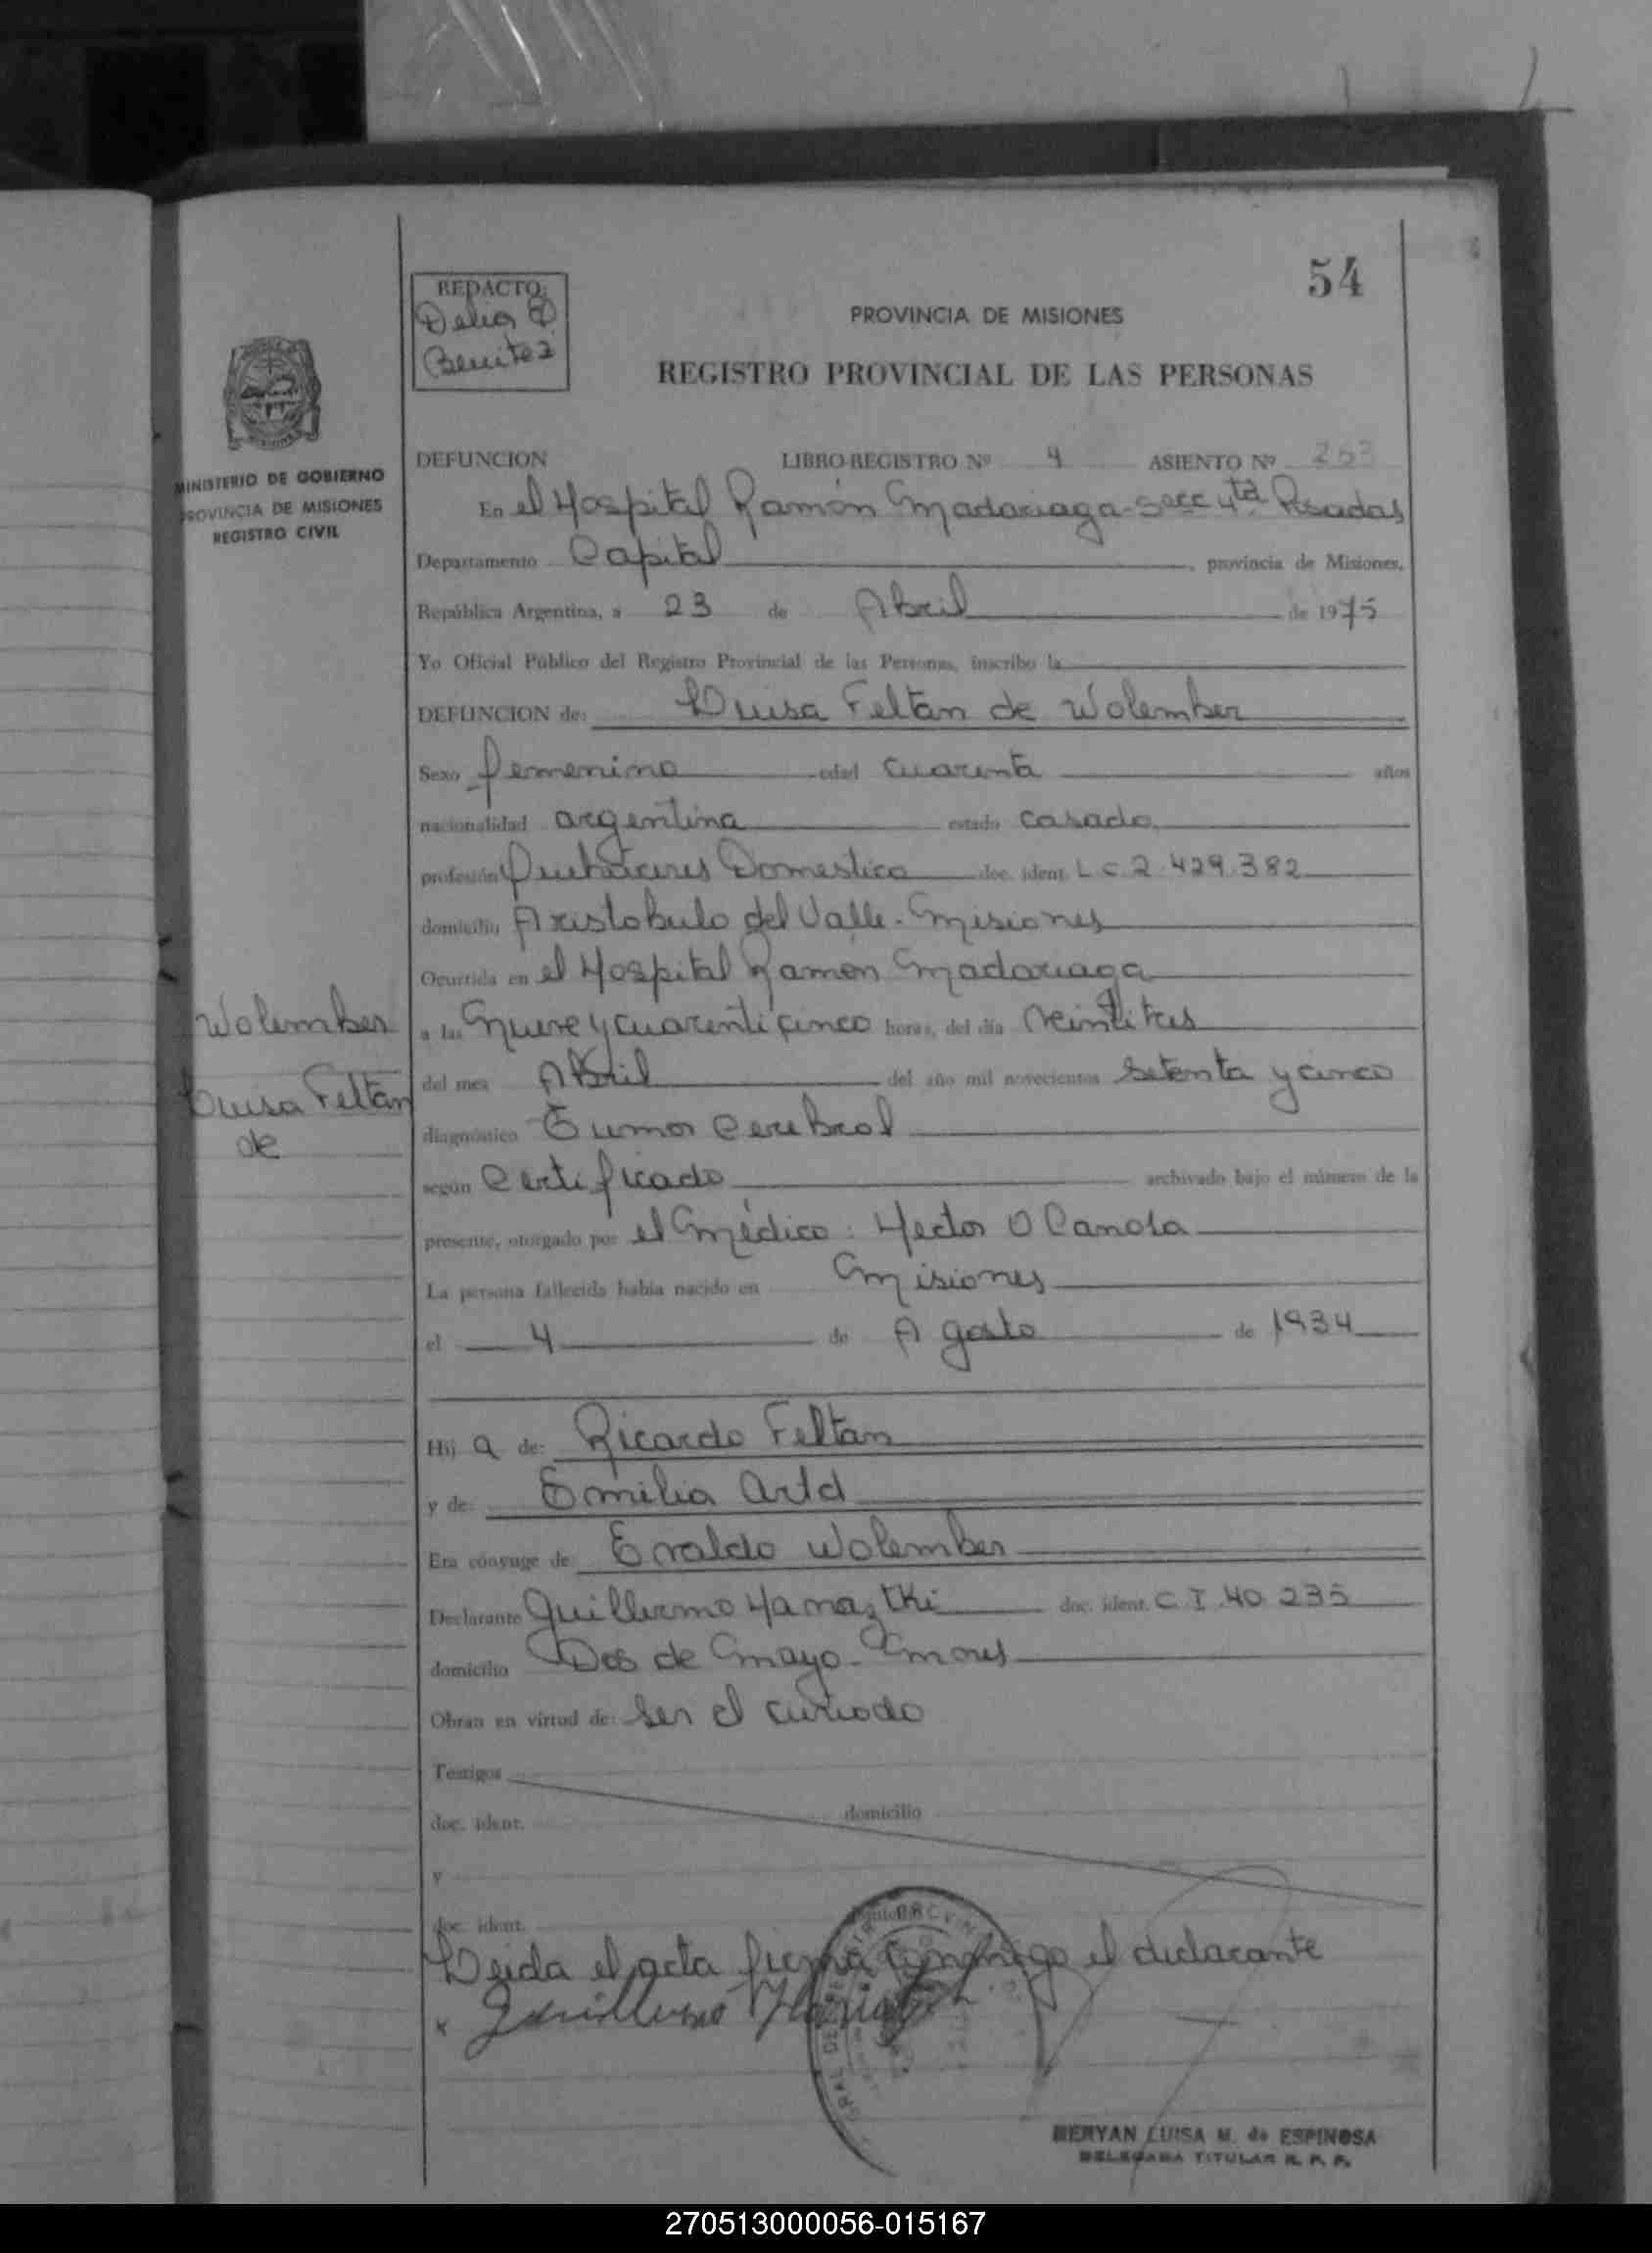 54
REDACTO:
Delia
Benitez
PROVINCIA DE MISIONES
REGISTRO PROVINCIAL DE LAS PERSONAS
MINISTERIO DE GOBIERNO
PROVINCIA DE MISIONES
REGISTRO CIVIL
DEFUNCION LIBRO-REGISTRO Nº 4 ASIENTO Nº 253
En el Hospital Ramón Madariaga-Secc 4ta Posadas
Departamento Capital, provincia de Misiones,
República Argentina, a 23 de Abril de 1975
Yo Oficial Público del Registro Provincial de las Personas, inscribo la
DEFUNCION de: Luisa Feltan de Wolember
Sexo femenino edad cuarenta años
nacionalidad argentina estado casada
profesión Quehaceres Domestico doc. ident. L.C. 2.429.382
domicilio Aristobulo del Valle - Misiones
Ocurrida en el Hospital Ramon Madariaga
Wolember
a las Nueve y cuarenticinco horas, del día Veintitres
Luisa Feltan
de
del mes Abril del año mil novecientos Setenta y cinco
diagnóstico Tumor Cerebral
según Certificado archivado bajo el número de la
presente, otorgado por el Médico: Hector O
La persona fallecida había nacido en Misiones
el 4 de Agosto de 1934
Hij a de: Ricardo Feltan
y de: Emilia Artd
Era cónyuge de Evaldo Wolember
Declarante Guillermo doc. ident. C.I. 40.235
domicilio Dos de Mayo - Mnes
Obran en virtud de: Ser el cuñado
Testigos
doc. ident. domicilio
y
doc. ident.
Leida el acta firma conmigo el declarante
x Guillermo
MERYAN LUISA M. de ESPINOSA
DELEGADA TITULAR R. P. P.
270513000056-015167